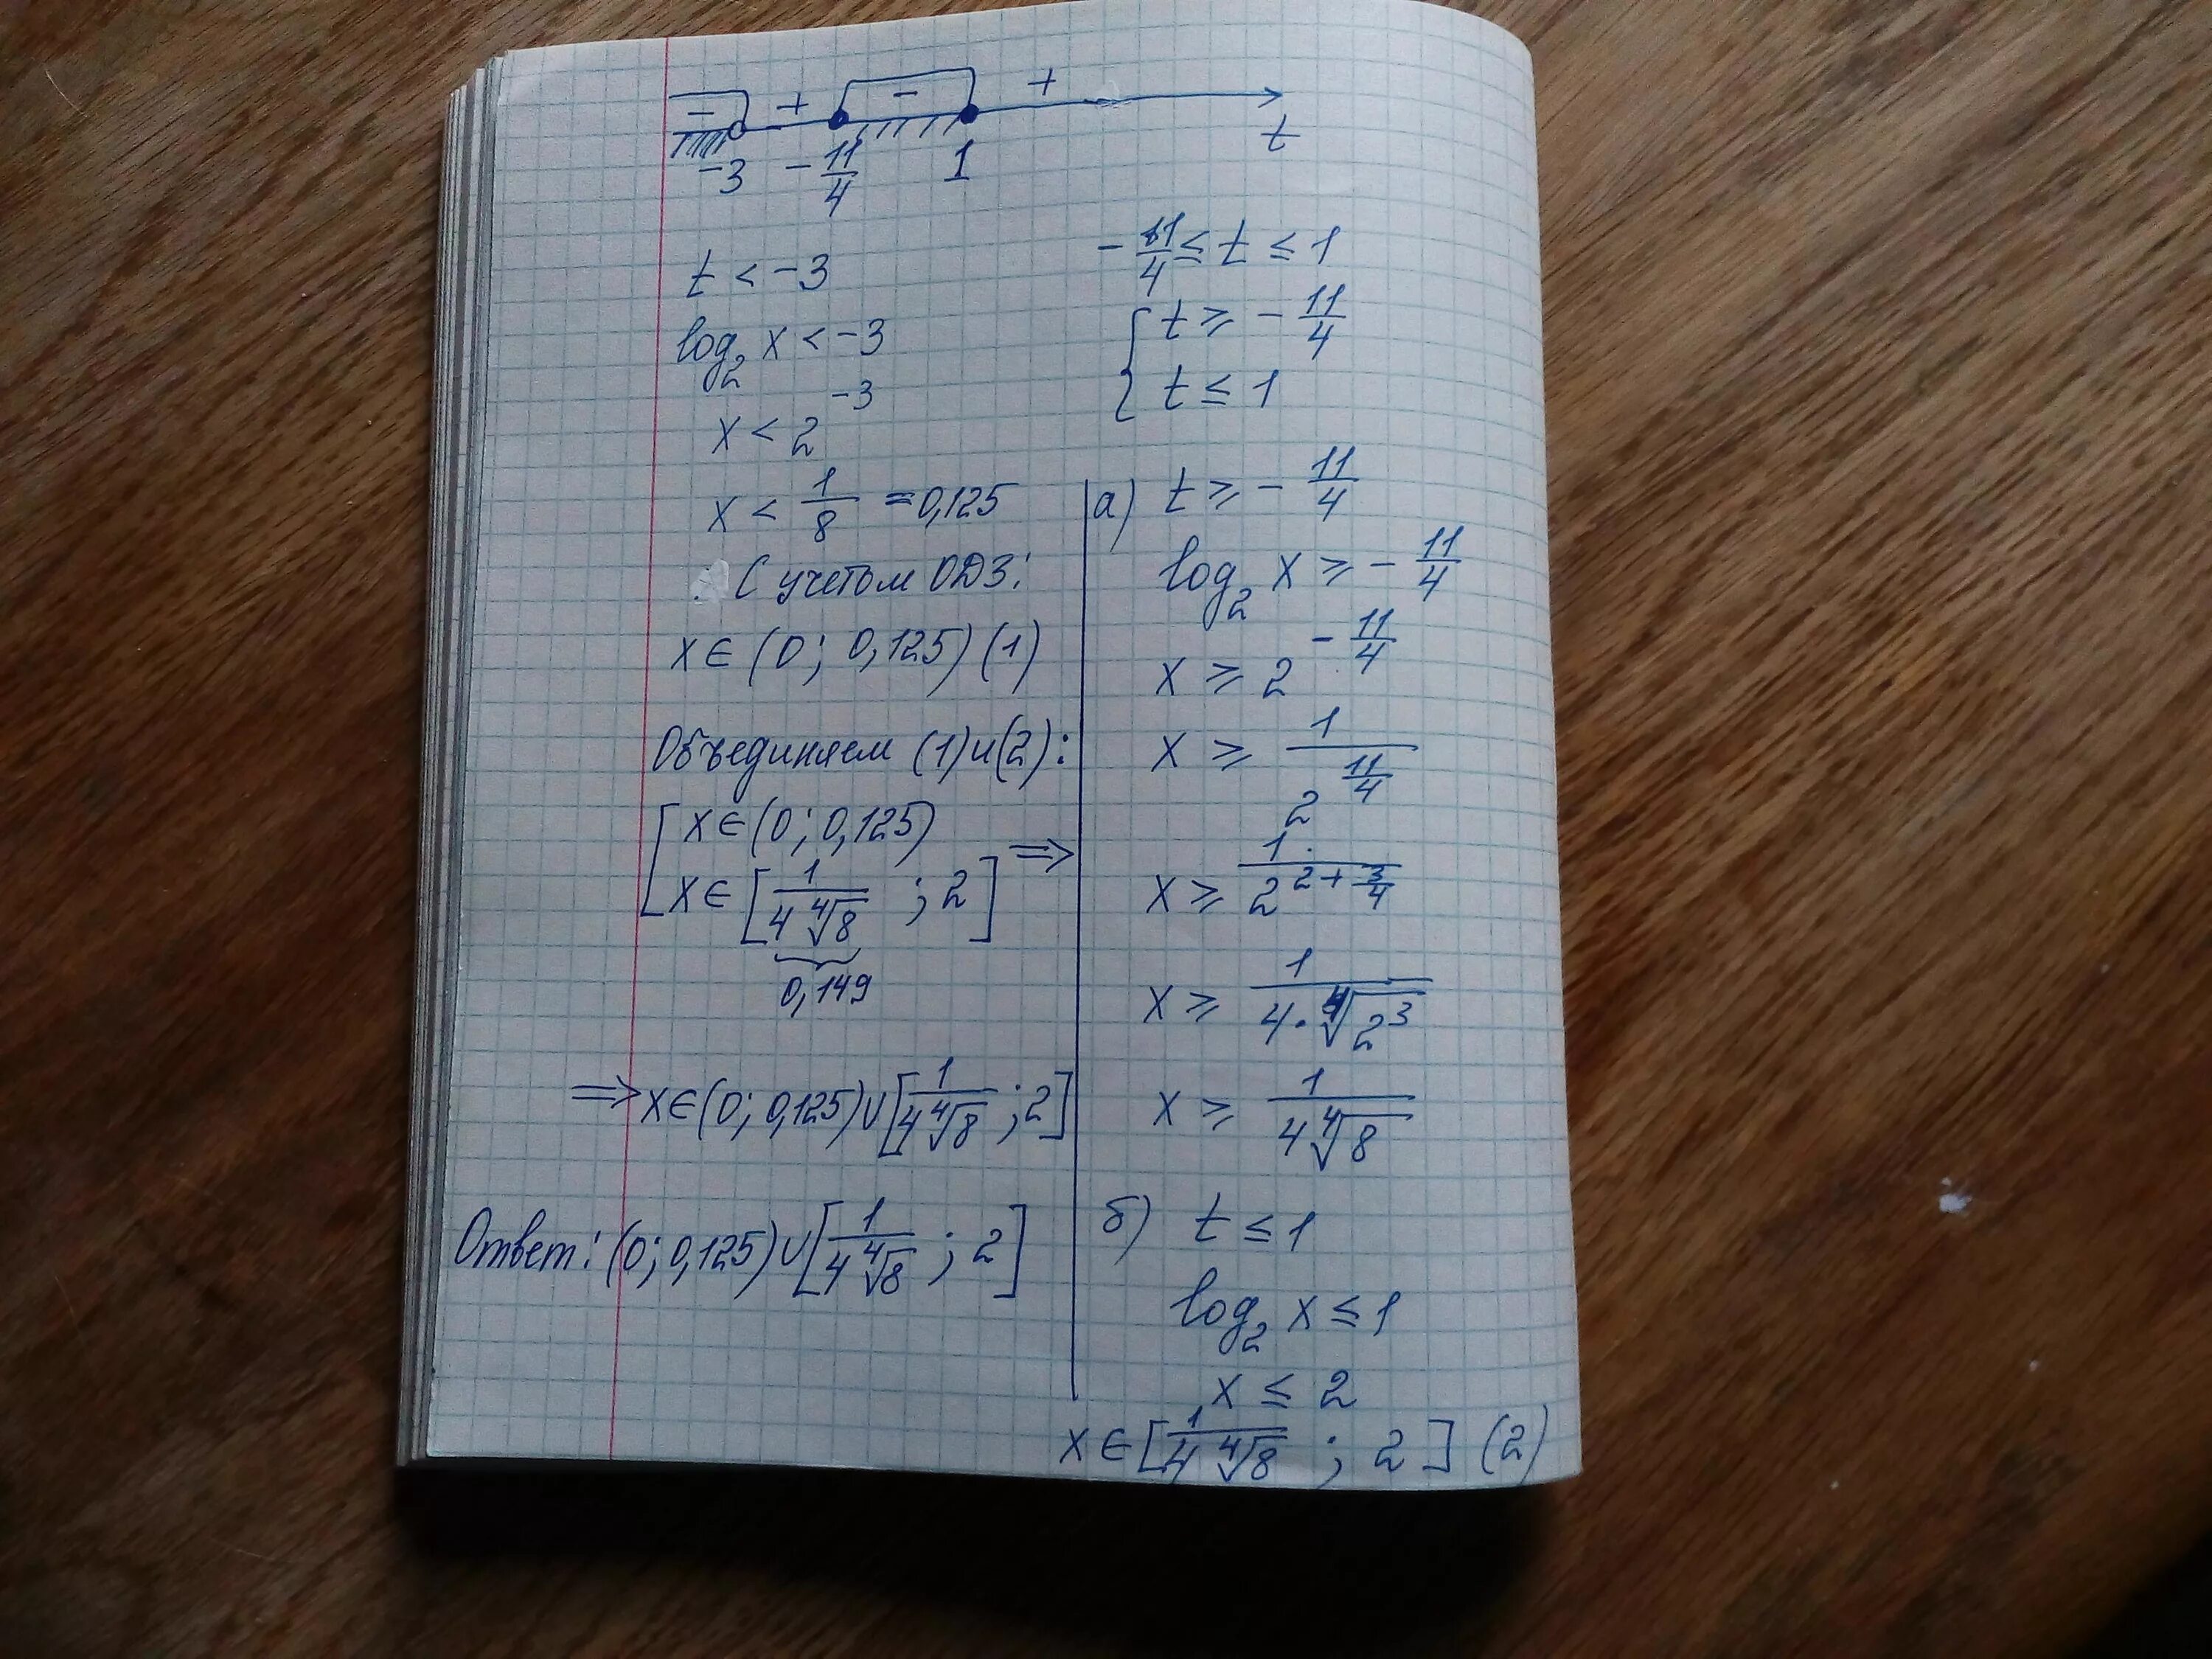 - + - +
-3 -11/4 1 t
t < -3
log₂ x < -3
x < 2⁻³
x < 1/8 = 0,125
С учетом ОДЗ:
x ∈ (0; 0,125) (1)
Объединяем (1) и (2):
[ x ∈ (0; 0,125)
x ∈ [1/(4∜8) ; 2] ⇒
0,149
⇒ x ∈ (0; 0,125) ∪ [1/(4∜8) ; 2]
Ответ: (0; 0,125) ∪ [1/(4∜8) ; 2]
-11/4 ≤ t ≤ 1
{ t ≥ -11/4
t ≤ 1
а) t ≥ -11/4
log₂ x ≥ -11/4
x ≥ 2^(-11/4)
x ≥ 1/2^(11/4)
x ≥ 1/2^(2+3/4)
x ≥ 1/(4·∜2³)
x ≥ 1/(4∜8)
б) t ≤ 1
log₂ x ≤ 1
x ≤ 2
x ∈ [1/(4∜8) ; 2] (2)